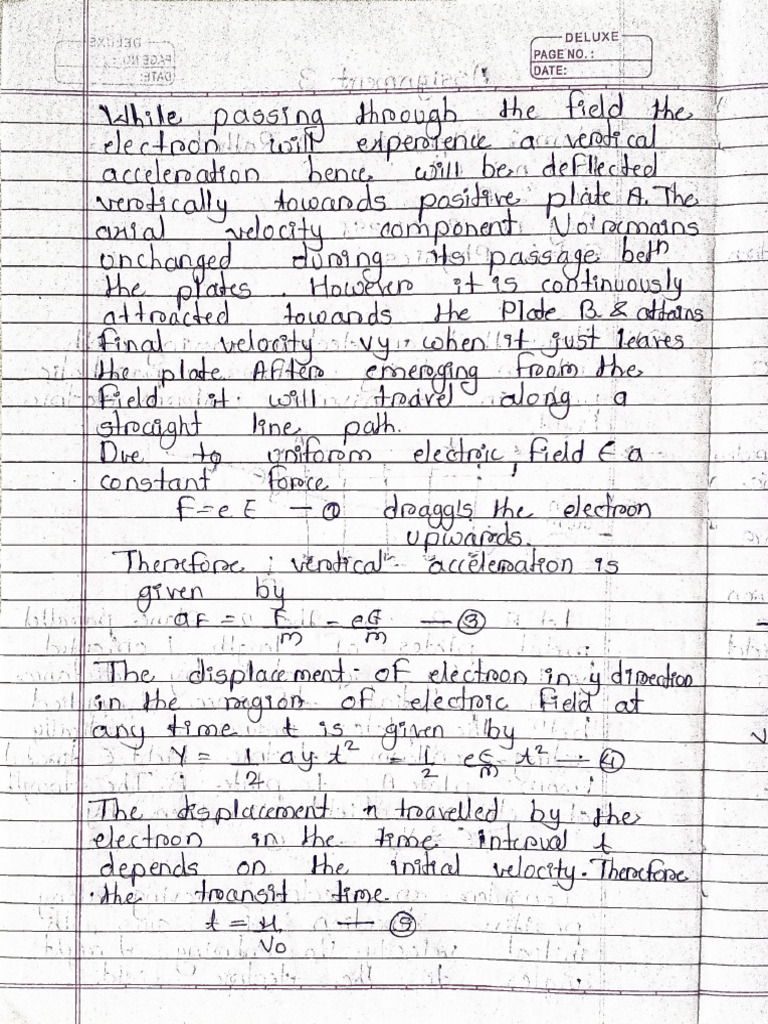 DELUXE
PAGE NO. :
DATE:
While passing through the field the
electron will experience a vertical
acceleration hence will be deflected
vertically towards positive plate A. The
axial velocity component Vo remains
unchanged during its passage betn
the plates. However it is continuously
attracted towards the Plate B & attains
final velocity vy, when it just leaves
the plate. After emerging from the
field it will travel along a
straight line path.
Due to uniform electric field E a
constant force
F = e E — ① draggls the electron
upwards.
Therefore, vertical acceleration is
given by
aF = F/m = eE/m — ③
The displacement of electron in y direction
in the region of electric field at
any time t is given by
Y = 1/2 ay t² = 1/2 eE/m t² — ④
The displacement travelled by the
electron in the time interval t
depends on the initial velocity. Therefore
the transit time.
t = x/Vo — ⑤